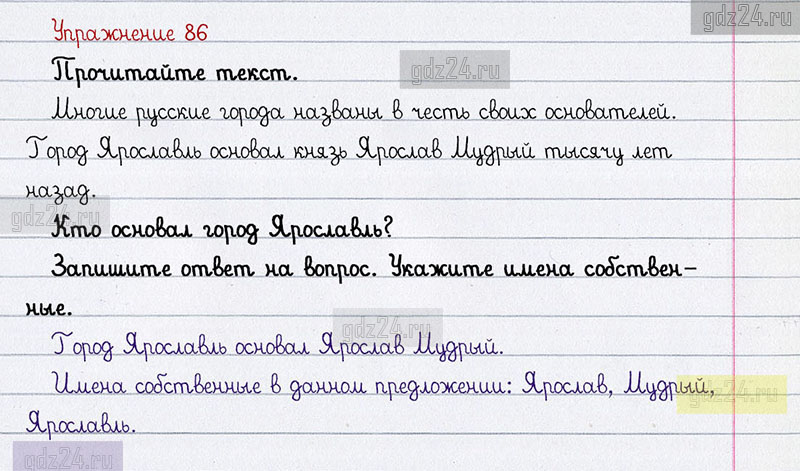 gdz24.ru
Упражнение 86
Прочитайте текст.
gdz24.ru
Многие русские города названы в честь своих основателей.
Город Ярославль основал князь Ярослав Мудрый тысячу лет
назад.
gdz24.ru
Кто основал город Ярославль?
Запишите ответ на вопрос. Укажите имена собствен-
ные.
gdz24.ru
Город Ярославль основал Ярослав Мудрый.
Имена собственные в данном предложении: Ярослав, Мудрый,
gdz24.ru
Ярославль.
gdz24.ru